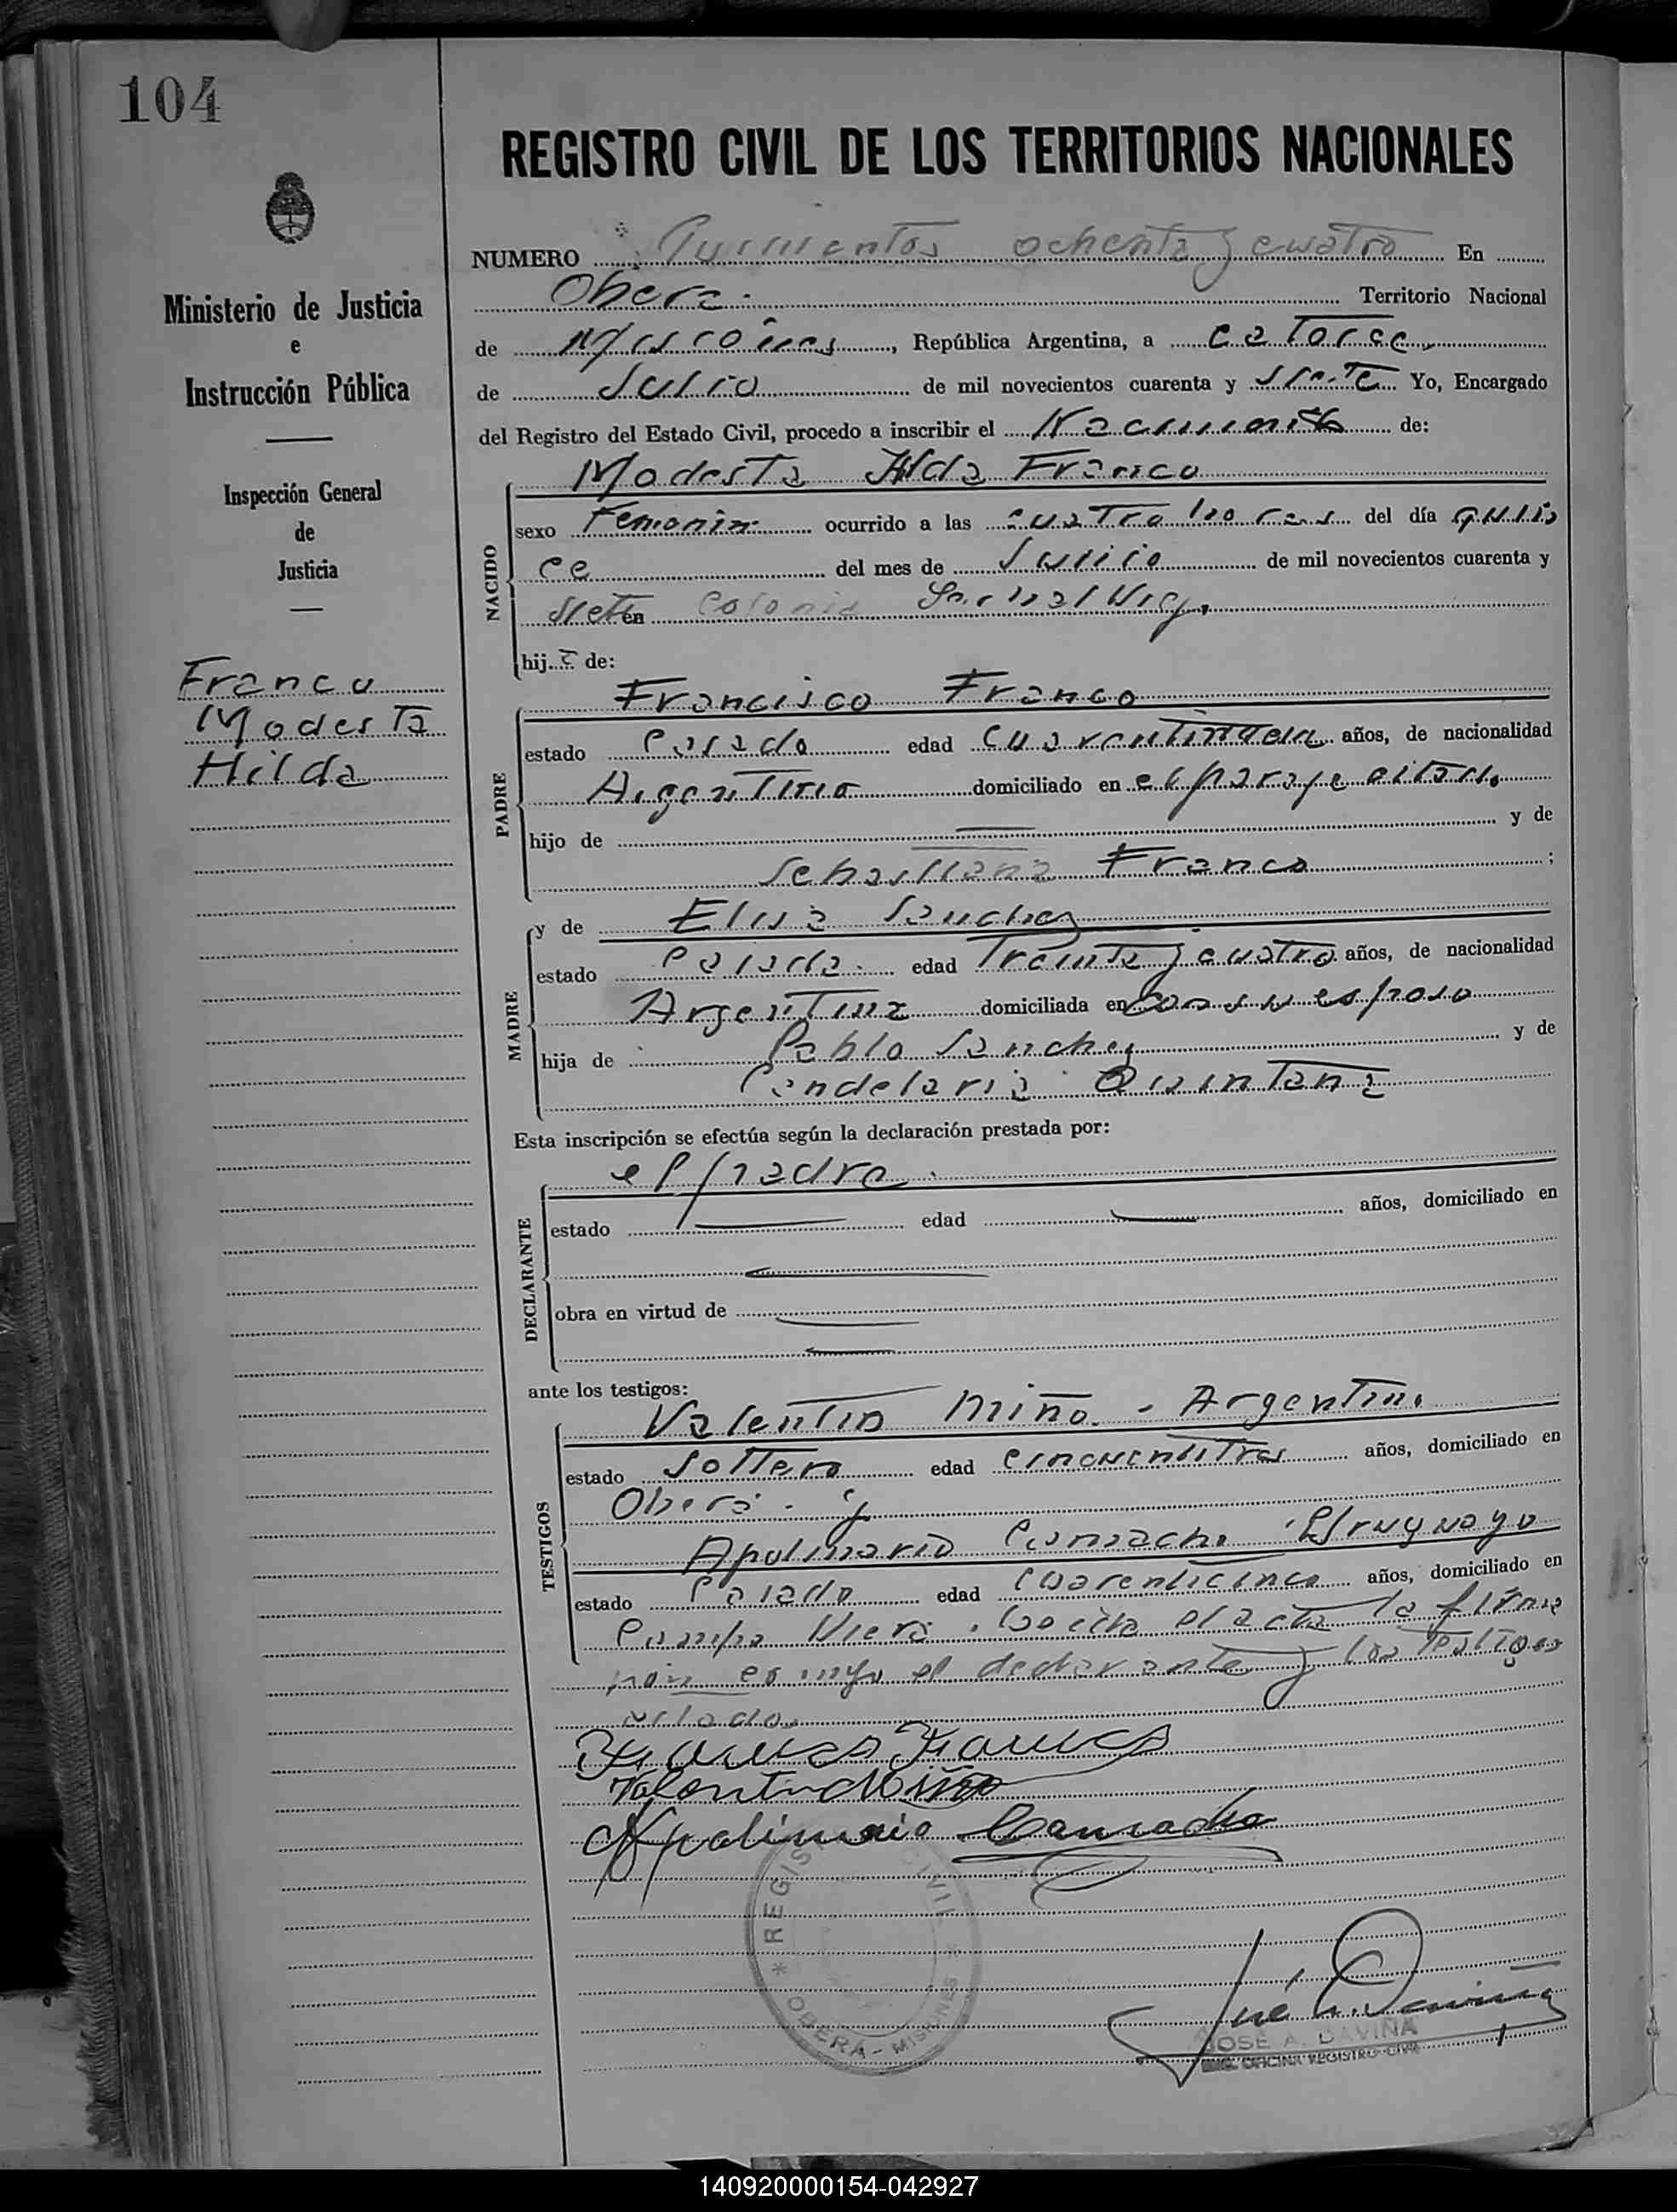 104
REGISTRO CIVIL DE LOS TERRITORIOS NACIONALES
Ministerio de Justicia
e
Instrucción Pública
Inspección General
de
Justicia
Franco
Modesta
Hilda
NUMERO ochenta y cuatro En
Oberá. Territorio Nacional
de Misiones, República Argentina, a catorce
de Julio de mil novecientos cuarenta y siete Yo, Encargado
del Registro del Estado Civil, procedo a inscribir el Nacimiento de:
Modesta Hilda Franco
NACIDO
sexo Femenino ocurrido a las cuatro horas del día quin
ce del mes de Junio de mil novecientos cuarenta y
siete en Colonia
hij a de:
Francisco Franco
PADRE
estado Casado edad años, de nacionalidad
Argentino domiciliado en el paraje citado
hijo de y de
Sebastiana Franco ;
MADRE
y de Elisa Sanchez
estado Casada edad Treinta y cuatro años, de nacionalidad
Argentina domiciliada en con su esposo
hija de Pablo Sanchez y de
Candelaria Quintana
Esta inscripción se efectúa según la declaración prestada por:
el padre
DECLARANTE
estado edad años, domiciliado en
obra en virtud de
ante los testigos:
Valentin Miño - Argentino
TESTIGOS
estado Soltero edad cincuentitres años, domiciliado en
Oberá. y
Apolinario Camacho Uruguayo
estado Casado edad cuarenticinco años, domiciliado en
Campo Viera. Leida el acta la firma
conmigo el declarante y los testigos
citados
Francisco Franco
Valentin Miño
Apolinario Camacho
* REGISTRO CIVIL *
OBERÁ - MISIONES
JOSE A. DAVIÑA
ENC. OFICINA REGISTRO CIVIL
140920000154-042927